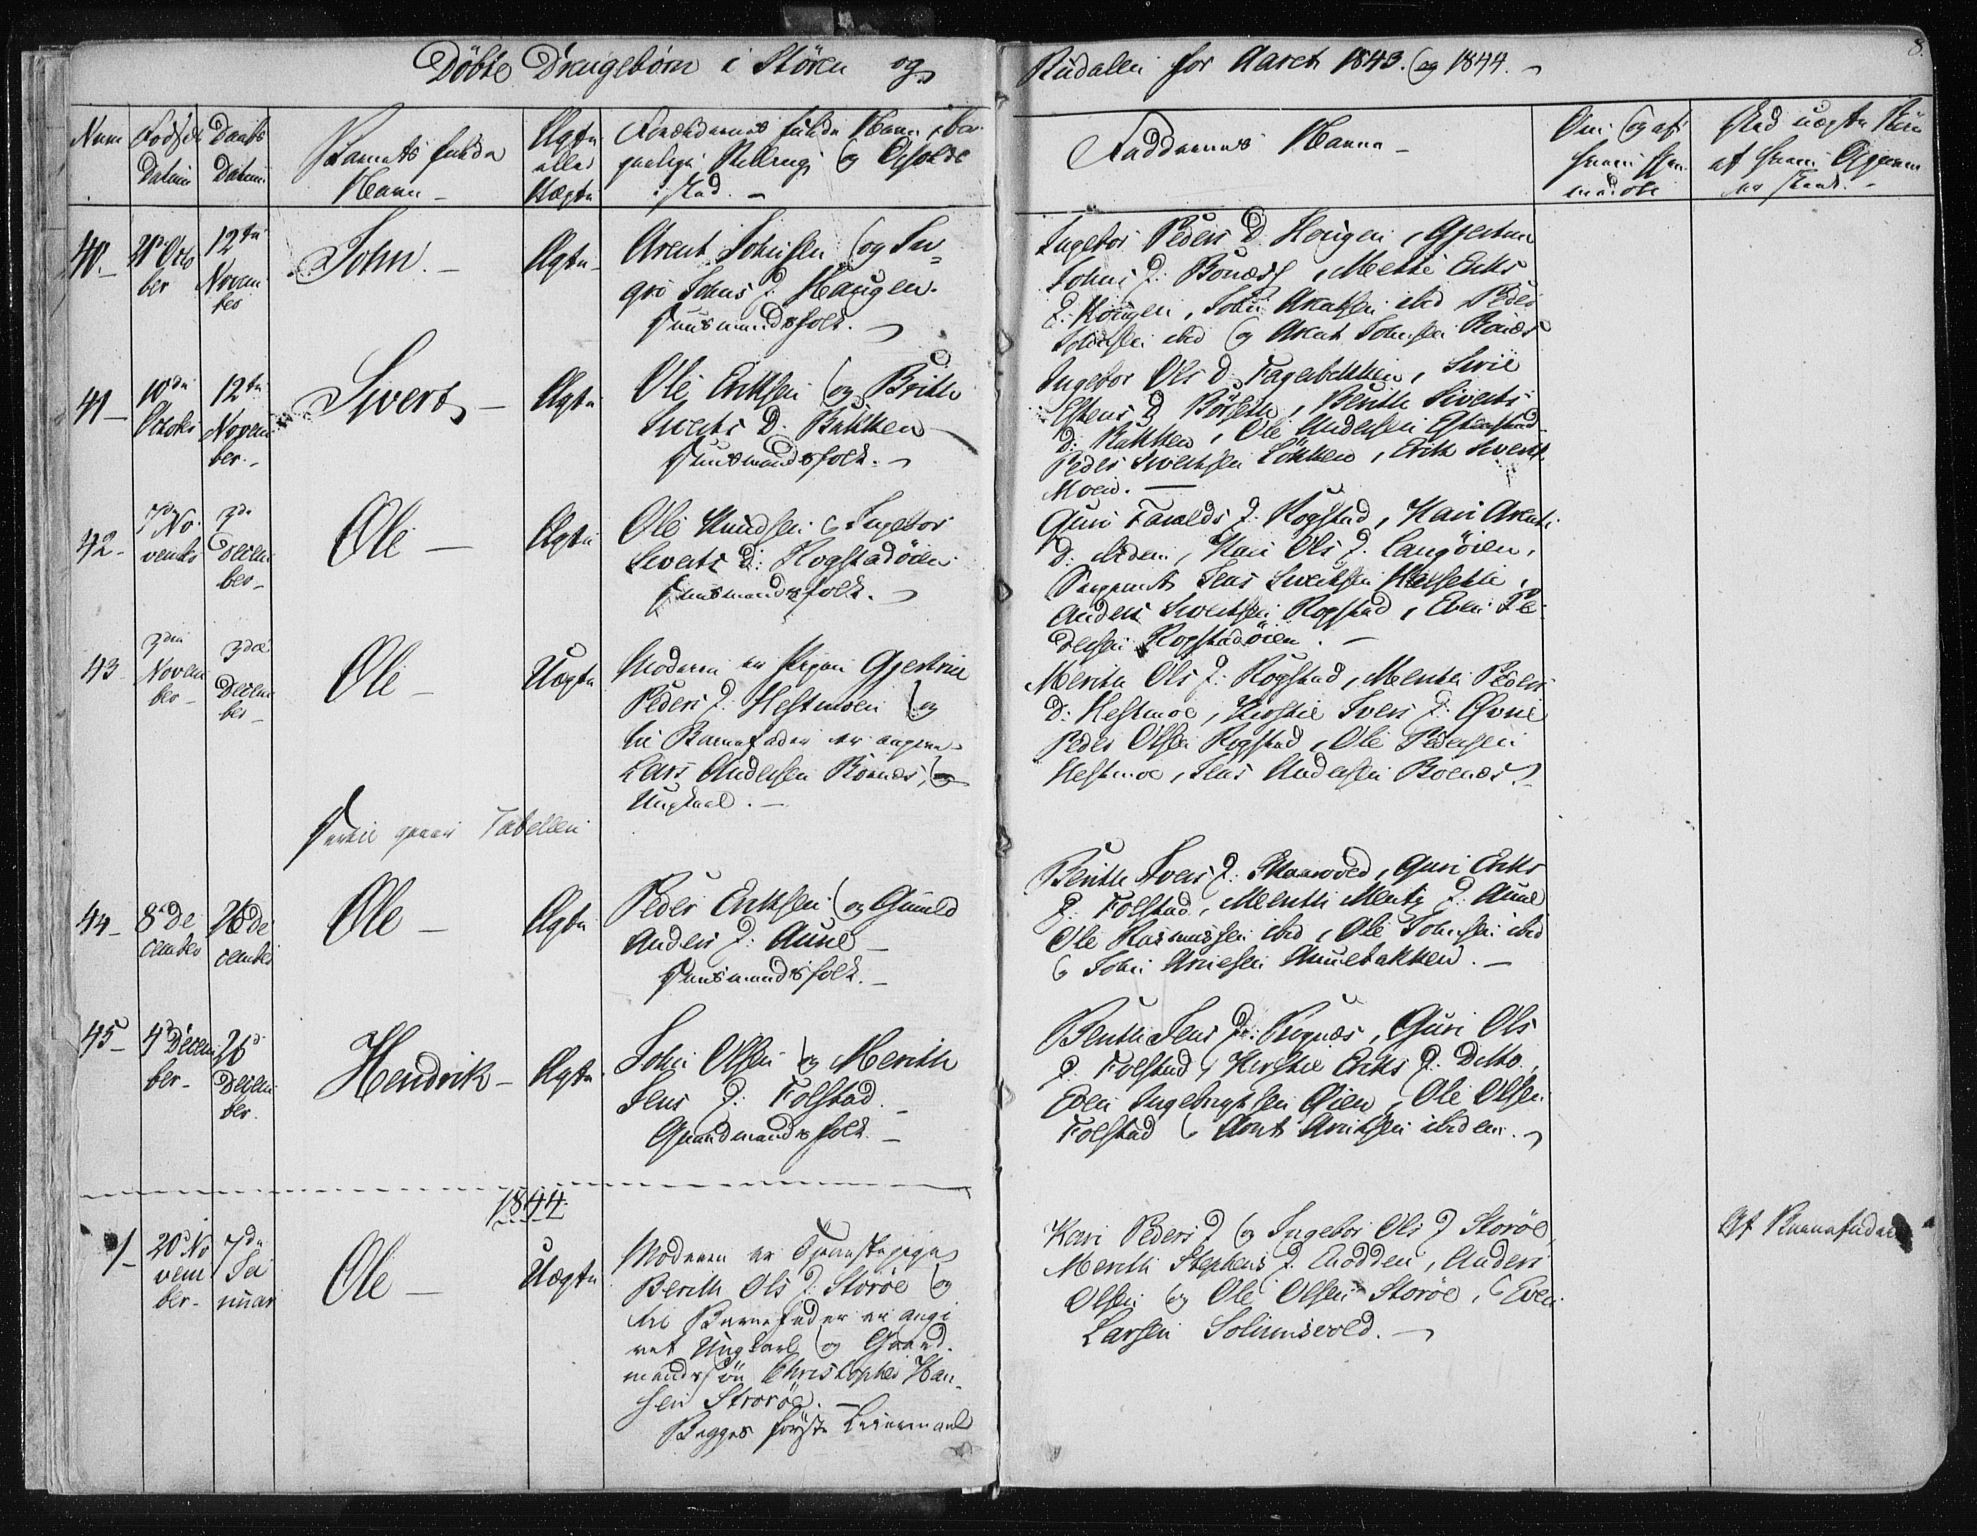 Döbte Drengebörn i Stören og Budalen for Aaret 1843. og 1844.
8.
Num
Fødsels
Datum
Daabs
Datum
Barnets fulde
Navn
Ægte
eller
Uægte
Forældrenes fulde Navn, bor-
gerlige Stilling og Opholds
sted.
Faddernes Navne
40.
28 Octo
ber
12te
Novem
ber
John.
Ægte
Arent Johnsen og In-
gri Johns D. Haugen.
Huusmandsfolk.
Ingebor Peders D. Haugen, Gjertrue
Johns D. Bonæss, Merethe Eriks
D. Haugen, John Arentsen ibid Peder
Johnsen ibid og Arent Johnsen Bonæs
41
10de
Octobr
12te
Novem
ber.
Sivert
Ægte
Ole Eriksen og Brithe
Siverts D. Bakken
Huusmandsfolk.
Ingebor Ols D. Fagerbekken,
Estens D. Börseth, Berith Siverts
D. Bakken, Ole Andersen
Peder Sivertsen Lökken, Erik Sivert
Moen.
42
7de No
vember
3de
Decem
ber
Ole
Ægte
Ole Knudsen & Ingebor
Siverts D: Rogstadöien
Huusmandsfolk.
Guri Haralds D. Rogstad, Kari Arents
D. ibidem, Kari Ols D. Langöien,
Sergeant Jens Sivertsen
Anders Sivertsen Rogstad, Even Pe-
dersen Rogstadöien.
43
Novem
ber
3die
Decem
ber
Ole
Uægte
Moderen er Pigen Gjertrue
Peders D. Hestmoen og
til Barnefader er angiven
Lars Andersen Bonæs,
Ungkarl.
Merithe Ols D. Rogstad, Merethe Peders
D: Hestmoe, Kirstie Ivers D. Øvrie
Peder Olsen Rogstad, Ole Pedersen
Hestmoe, Jens Andersen Bonæs.
Tabellen
44
8 De
cember
26 De
cember
Ole
Ægte
Peder Eriksen og Gunild
Anders D. Aune
Huusmandsfolk.
Berithe Ivers D. , Guri Eriks
D. Folstad, Merethe D. Aune
Ole Rasmussen ibid, Ole Johnsen ibid
& John Arnesen Aunebakken.
45
4 Decem
ber
26
Decem
ber.
Hendrik
Ægte
John Olsen og Merithe
Jens D. Folstad.
Gaardmandsfolk.
Berithe Jens D: Rognæs, Guri Ols
D. Folstad, Kirstie Eriks D. Ditto,
Even Ingebrigtsen Öien, Ole Olsen
Folstad & Arnt Arentsen ibidem.
1844.
1
20 No
vem
ber
7de
Ja
nuar
Ole
Uægte
Moderen er Tjenestepigen
Berith Ols D. Storöe og
til Barnefader er angi
vet Ungkarl og Gaard-
mandssön Christopher Han-
sen Storöe.
Begges förste Leiermaal
Kari Peders D og Ingebor Ols D Storöe
Merethe Stephens D. Enodden, Anders
Olsen og Ole Olsen Storöe, & Even
Larsen Solumsvold.
Af Barnefaderen